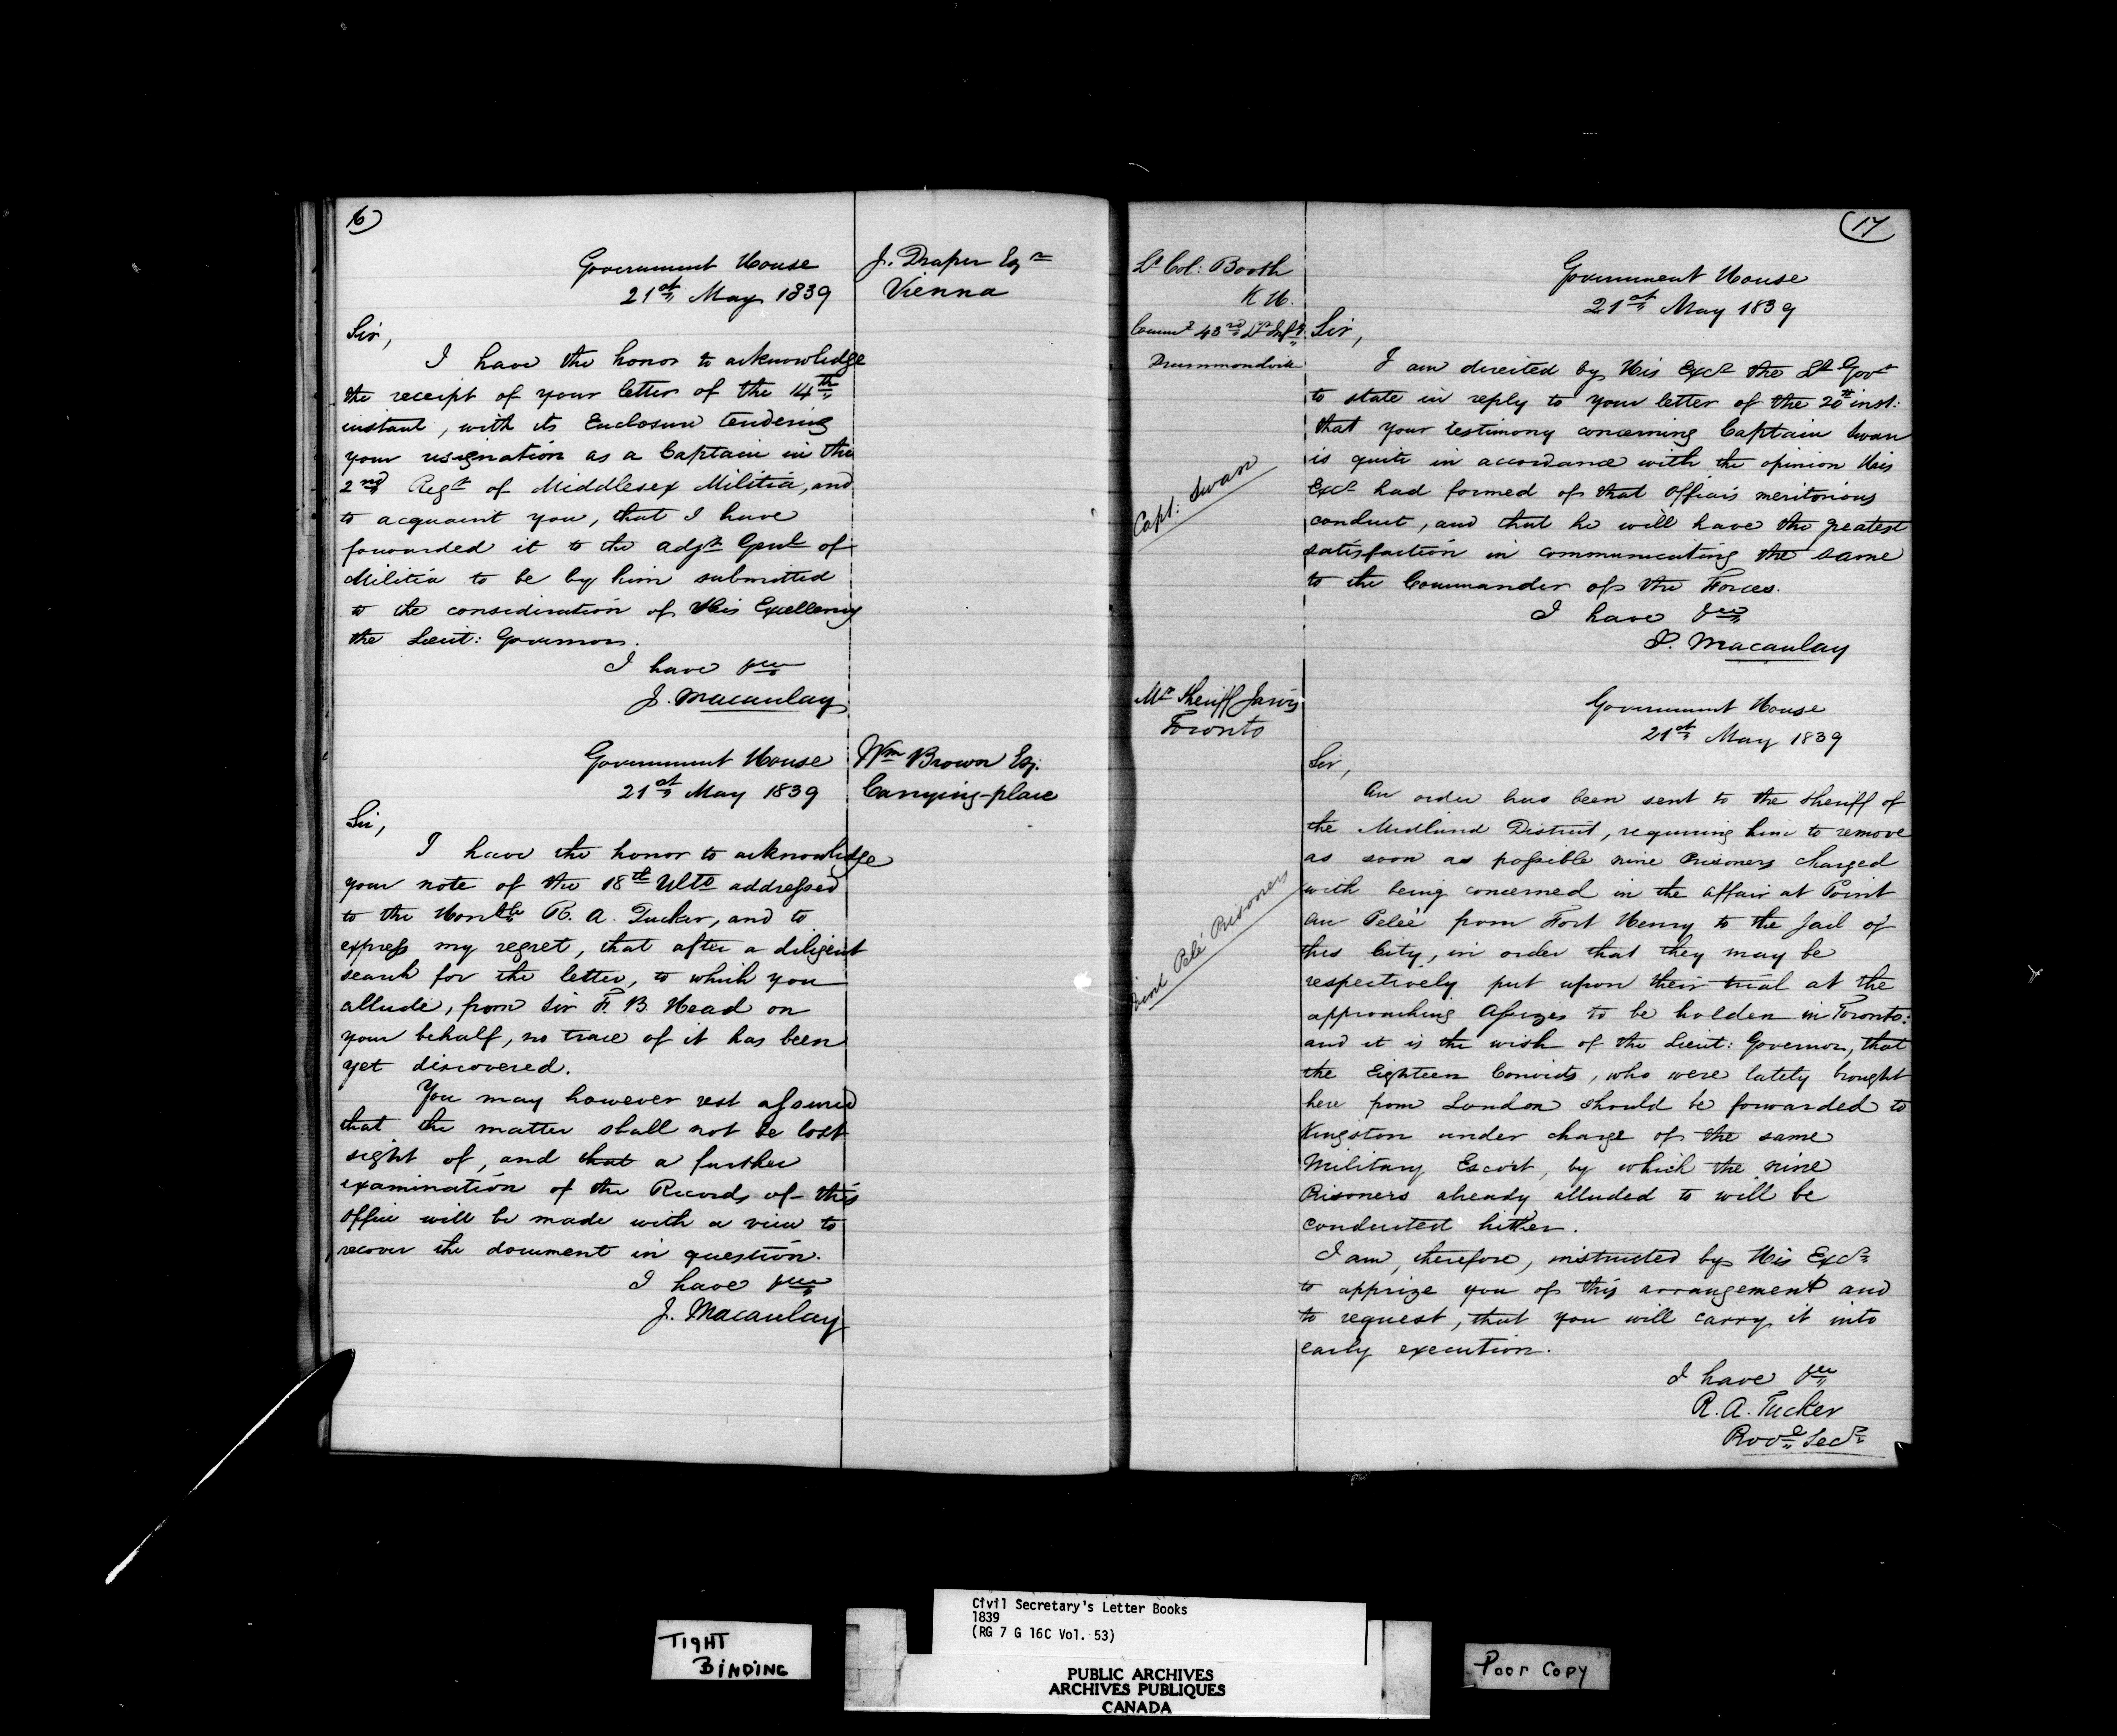 16)
Government House
21st May 1839
J. Draper Esqre
Vienna
Sir,
I have the honor to acknowledge
the receipt of your letter of the 14th
instant, with its Enclosure tendering
your resignation as a Captain in the
2nd Regt of Middlesex Militia, and
to acquaint you, that I have
forwarded it to the Adjt Genl of
Militia to be by him submitted
to the consideration of His Excellency
the Lieut: Governor.
I have &c
J. Macaulay
Government House
21st May 1839
Wm Brown Esq.
Carrying-place
Sir,
I have the honor to acknowledge
your note of the 18th Ulto addressed
to the Honble R. A. Tucker, and to
express my regret, that after a diligent
search for the letter, to which you
allude, from Sir F. B. Head on
your behalf, no trace of it has been
yet discovered.
You may however rest assured
that the matter shall not be lost
sight of, and that a further
examination of the Records of this
Office will be made with a view to
recover the document in question.
I have &c
J. Macaulay
(17
Lt Col: Booth
K H.
Commg 43rd Lt Infy
Drummondville
Government House
21st May 1839
Sir,
I am directed by His Excy the Lt Govr
to state in reply to your letter of the 20th inst:
that your testimony concerning Captain Swan
is quite in accordance with the opinion His
Excy had formed of that Officer's meritorious
conduct, and that he will have the greatest
satisfaction in communicating the same
to the Commander of the Forces.
I have &c
J. Macaulay
Capt: Swan
Mr Sheriff Jarvis
Toronto
Government House
21st May 1839
Sir,
An order has been sent to the Sheriff of
the Midland District, requiring him to remove
as soon as possible nine Prisoners charged
with being concerned in the affair at Point
au Peleé from Fort Henry to the Jail of
this City, in order that they may be
respectively put upon their trial at the
approaching Assizes to be holden in Toronto:
and it is the wish of the Lieut: Governor, that
the Eighteen Convicts, who were lately brought
here from London should be forwarded to
Kingston under charge of the same
Military Escort, by which the nine
Prisoners already alluded to will be
conducted hither.
I am, therefore, instructed by His Excy
to apprize you of this arrangement and
to request, that you will carry it into
early execution.
I have &c
R. A. Tucker
Provl Secy
Pelé Prisoners
TIGHT
BINDING
Civil Secretary's Letter Books
1839
(RG 7 G 16C Vol. 53)
PUBLIC ARCHIVES
ARCHIVES PUBLIQUES
CANADA
Poor Copy